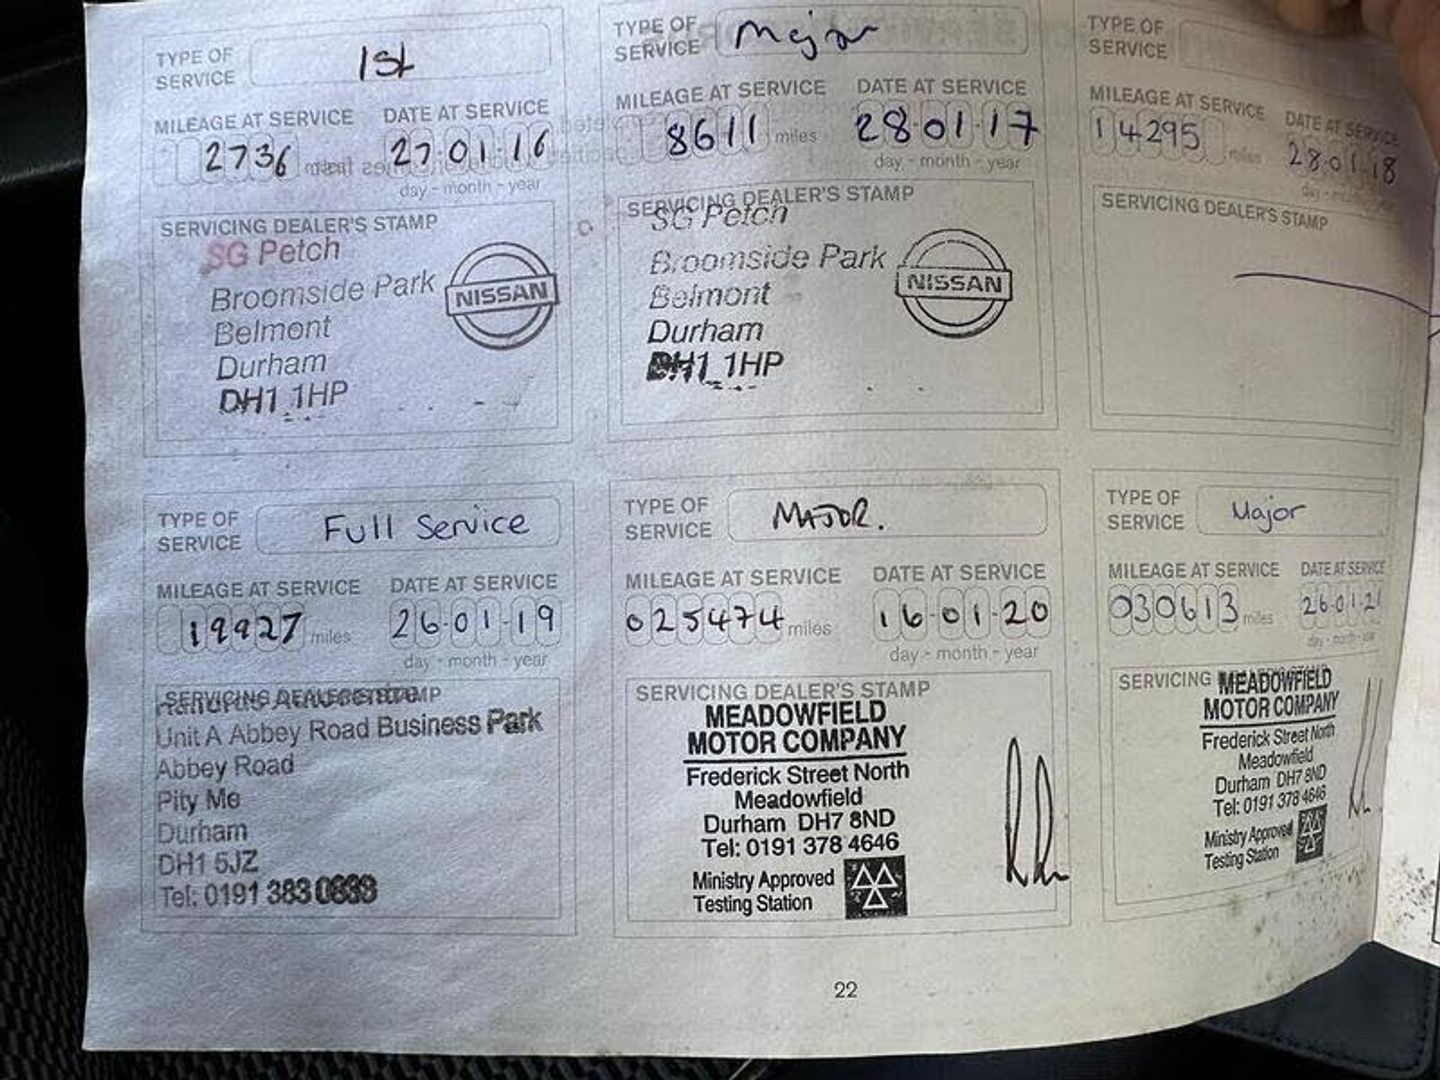 TYPE OF
SERVICE
1st
MILEAGE AT SERVICE
DATE AT SERVICE
2736
27·01·16
day - month - year
SERVICING DEALER'S STAMP
SG Petch
Broomside Park
Belmont
Durham
DH1 1HP
NISSAN
TYPE OF
SERVICE
Major
MILEAGE AT SERVICE
DATE AT SERVICE
8611 miles
28·01·17
day - month - year
SERVICING DEALER'S STAMP
SG Petch
Broomside Park
Belmont
Durham
DH1 1HP
NISSAN
TYPE OF
SERVICE
MILEAGE AT SERVICE
DATE AT SERVICE
14295 miles
28·01·18
SERVICING DEALER'S STAMP
TYPE OF
SERVICE
Full Service
MILEAGE AT SERVICE
DATE AT SERVICE
19927 miles
26·01·19
day - month - year
SERVICING DEALER'S STAMP
Unit A Abbey Road Business Park
Abbey Road
Pity Me
Durham
DH1 5JZ
Tel: 0191 383
TYPE OF
SERVICE
MAJOR.
MILEAGE AT SERVICE
DATE AT SERVICE
025474 miles
16·01·20
day - month - year
SERVICING DEALER'S STAMP
MEADOWFIELD
MOTOR COMPANY
Frederick Street North
Meadowfield
Durham DH7 8ND
Tel: 0191 378 4646
Ministry Approved
Testing Station
TYPE OF
SERVICE
Major
MILEAGE AT SERVICE
DATE AT SERVICE
030613 miles
26·01·21
day - month - year
SERVICING
MEADOWFIELD
MOTOR COMPANY
Frederick Street North
Meadowfield
Durham DH7 8ND
Tel: 0191 378 4646
Ministry Approved
Testing Station
22